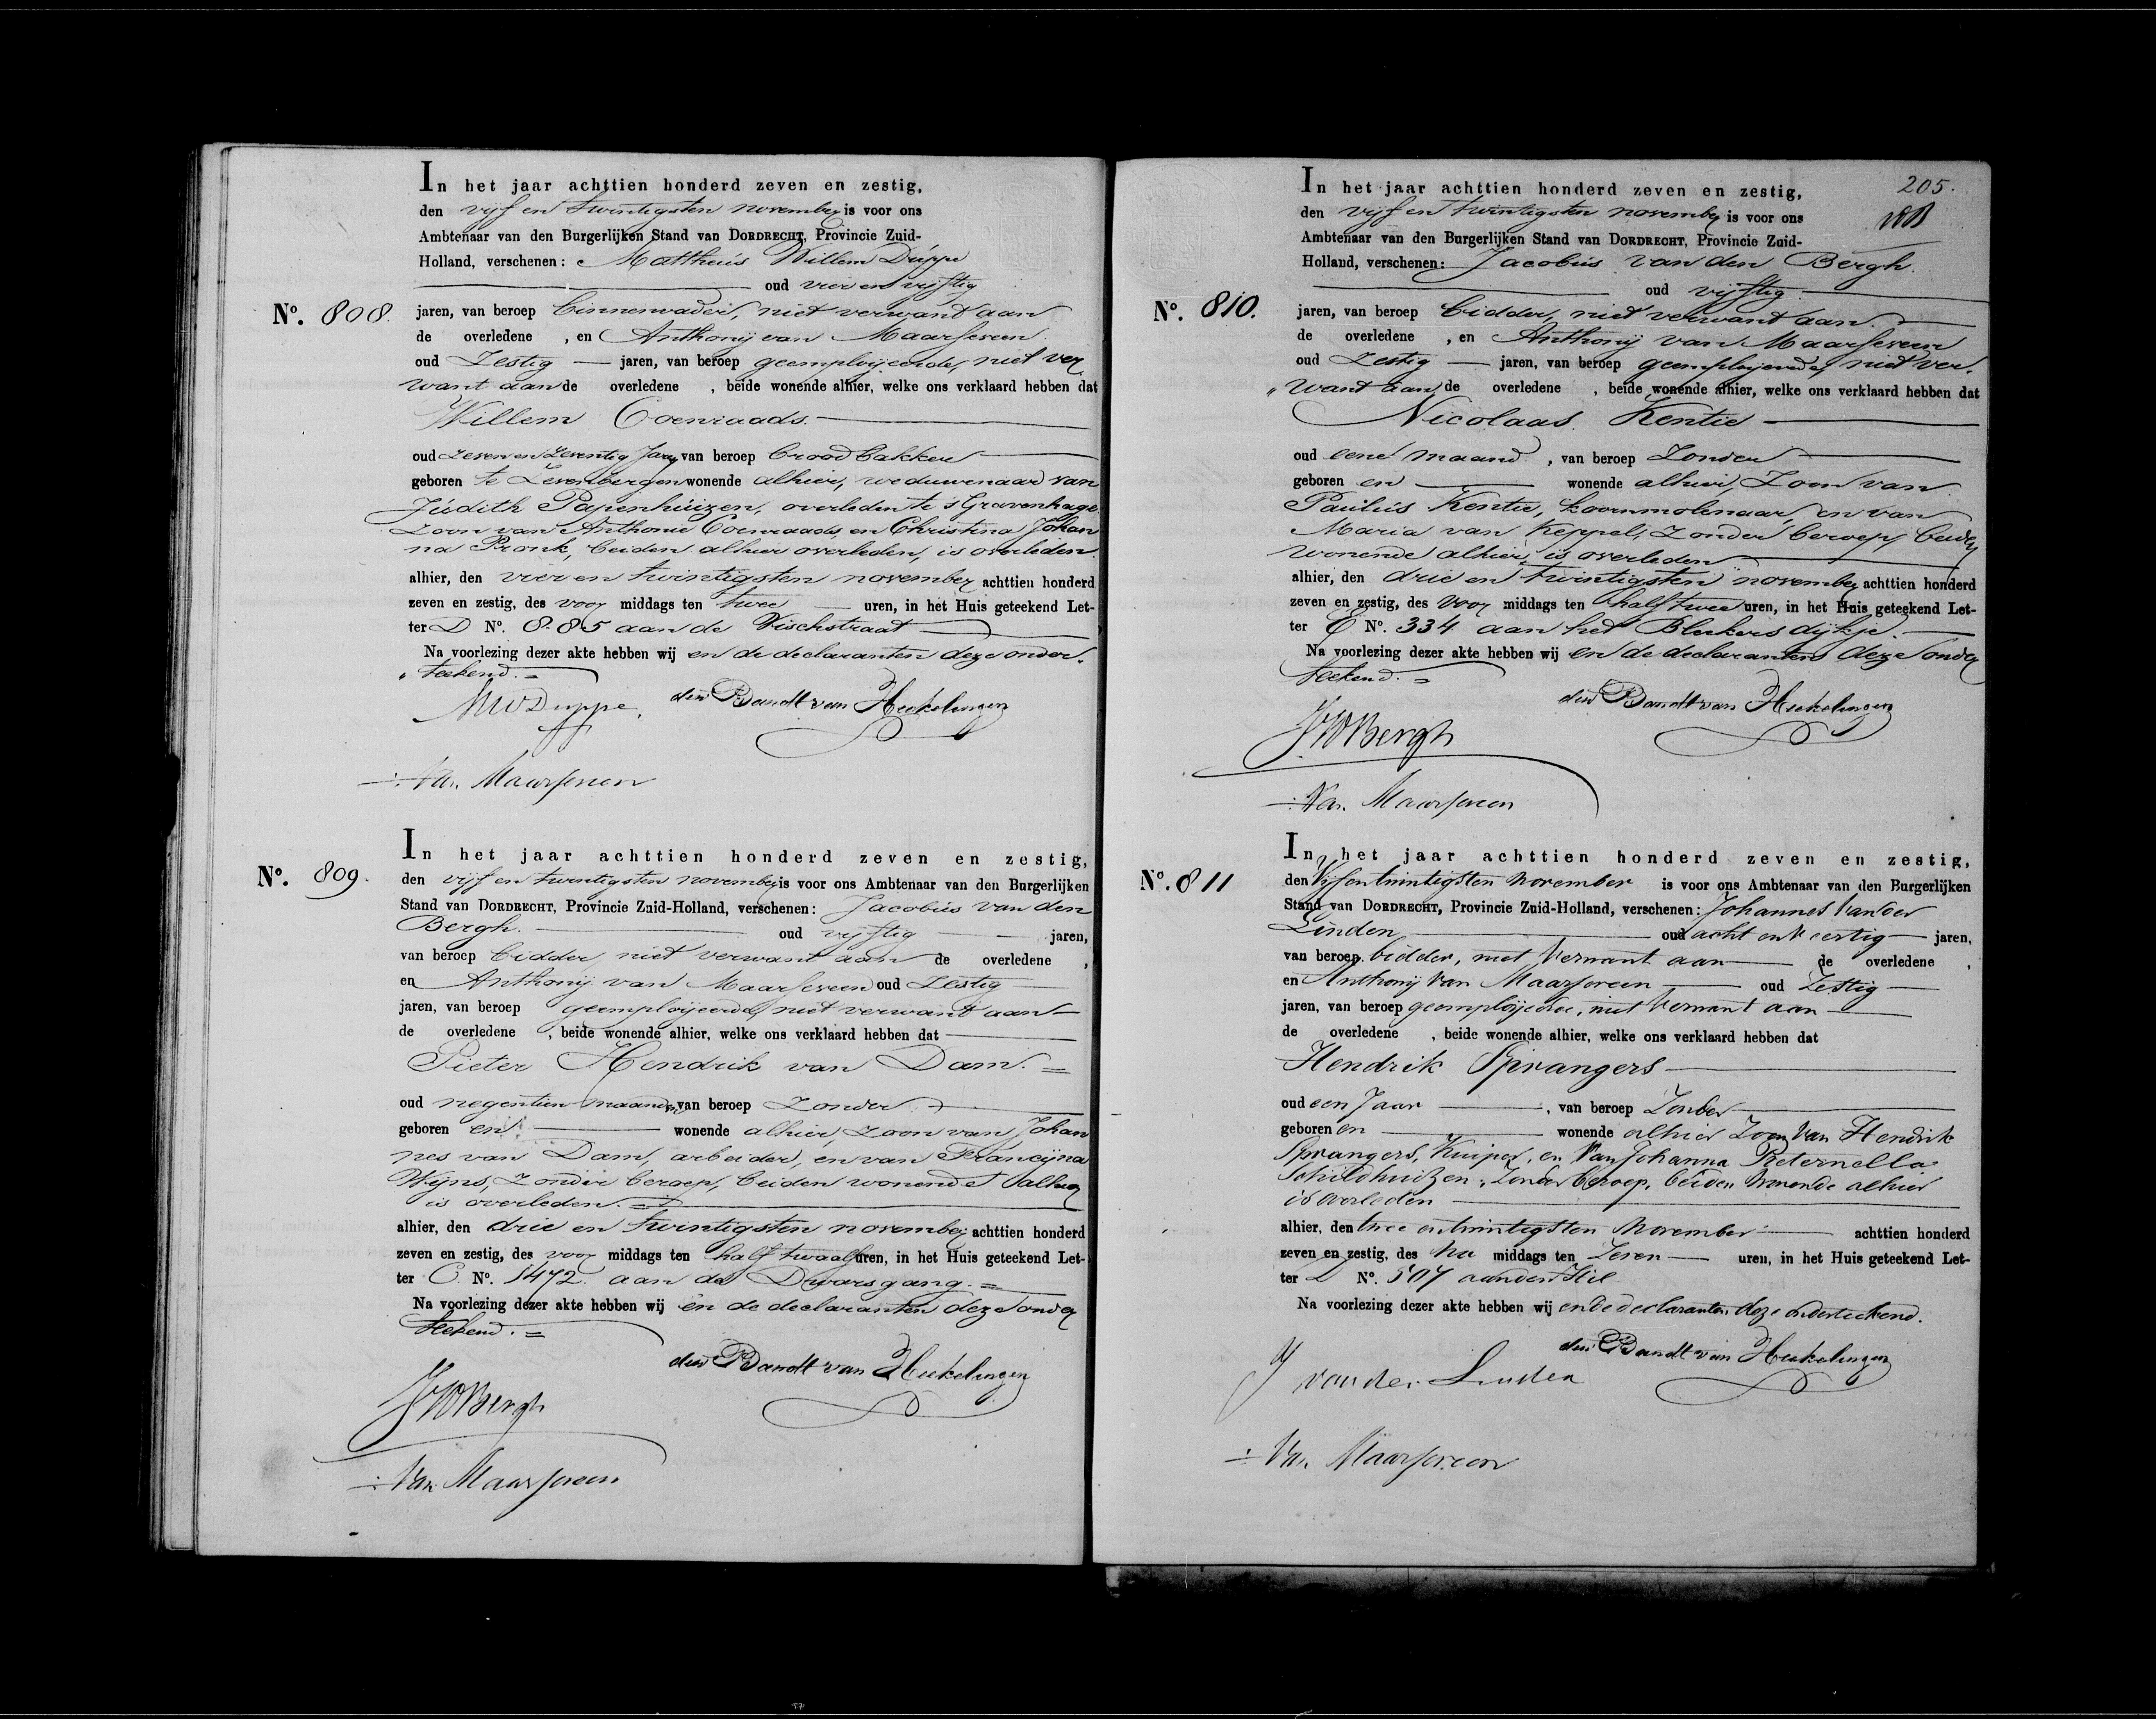 In het jaar achttien honderd zeven en zestig,
den vijf en twintigsten november is voor ons
Ambtenaar van den Burgerlijken Stand van DORDRECHT, Provincie Zuid-
Holland, verschenen: Mattheus Willem Duppe
oud vier en vijftig
No. 808. jaren, van beroep binnenvader, niet verwant aan
de overledene , en Anthonij van Maarseveen
oud Zestig jaren, van beroep geemploijeerde, niet ver
want aan de overledene , beide wonende alhier, welke ons verklaard hebben dat
Willem Coenraads.
oud zeven en zeventig Jaren van beroep broodbakker
geboren te Zevenbergen wonende alhier, weduwenaar van
Judith Papenhuizen, overleden te s'Gravenhage
Zoon van Anthonie Coenraads, en Christina Johan
na Pronk, beiden alhier overleden, is overleden
alhier, den vier en twintigsten november achttien honderd
zeven en zestig, des voor middags ten twee uren, in het Huis geteekend Let-
ter D No. 885 aan de Vischstraat
Na voorlezing dezer akte hebben wij en de declaranten deze onder-
„ teekend. =
MWDuppe. den Bandt van Heekelingen
Van Maarseveen
In het jaar achttien honderd zeven en zestig,
No. 809. den vijf en twintigsten november is voor ons Ambtenaar van den Burgerlijken
Stand van DORDRECHT, Provincie Zuid-Holland, verschenen: Jacobus van den
Bergh. oud vijftig jaren,
van beroep bidder, niet verwant aan de overledene ,
en Anthonij van Maarseveen oud Zestig
jaren, van beroep geemploijeerde, niet verwant aan
de overledene , beide wonende alhier, welke ons verklaard hebben dat
Pieter Hendrik van Dam. =
oud negentien maanden, van beroep Zonder
geboren en wonende alhier, zoon van Johan
nes van Dam, arbeider, en van Francijna
Wijns, zonder beroep, beiden wonende alhier
is overleden. =
alhier, den drie en twintigsten november achttien honderd
zeven en zestig, des voor middags ten half twaalf uren, in het Huis geteekend Let-
ter C. No. 1472. aan de Dwarsgang. =
Na voorlezing dezer akte hebben wij en de declaranten deze onder
teekend. =
den Bandt van Heekelingen
JVDBergh
Van Maarseveen
205.
In het jaar achttien honderd zeven en zestig,
den vijf en twintigsten november is voor ons
Ambtenaar van den Burgerlijken Stand van DORDRECHT, Provincie Zuid-
Holland, verschenen: Jacobus van den Bergh.
oud vijftig
No. 810. jaren, van beroep bidder, niet verwant aan.
de overledene , en Anthonij van Maarseveen
oud Zestig jaren, van beroep geemploijeerde, niet ver-
„ want aan de overledene , beide wonende alhier, welke ons verklaard hebben dat
Nicolaas Kentie
oud eene maand , van beroep Zonder
geboren en wonende alhier, Zoon van
Paulus Kentie, koornmolenaar, en van
Maria van Keppel, Zonder beroep, beiden
wonende alhier, is overleden
alhier, den drie en twintigsten november achttien honderd
zeven en zestig, des voor middags ten half twee uren, in het Huis geteekend Let-
ter E No. 334 aan het Blekersdijkje.
Na voorlezing dezer akte hebben wij en de declaranten deze onder
teekend. =
den Bandt van Heekelingen
JVDBergh
Van Maarseveen
In het jaar achttien honderd zeven en zestig,
No. 811 den Vijfentwintigsten November is voor ons Ambtenaar van den Burgerlijken
Stand van DORDRECHT, Provincie Zuid-Holland, verschenen: Johannes van der
Linden oud acht en veertig jaren,
van beroep bidder, niet verwant aan de overledene ,
en Anthonij van Maarseveen oud Zestig
jaren, van beroep geemploijeerde, niet verwant aan
de overledene , beide wonende alhier, welke ons verklaard hebben dat
Hendrik Sprangers
oud een Jaar , van beroep Zonder
geboren en wonende alhier Zoon van Hendrik
Sprangers, Kuiper, en van Johanna Peternella
Schildhuizen, Zonder beroep, beiden wonende alhier
is overleden
alhier, den twee en twintigsten November achttien honderd
zeven en zestig, des Na middags ten Zeven uren, in het Huis geteekend Let-
ter D No. 507 aan den Hil
Na voorlezing dezer akte hebben wij en de declaranten deze onderteekend.
den Bandt van Heekelingen
J van der Linden
Van Maarseveen